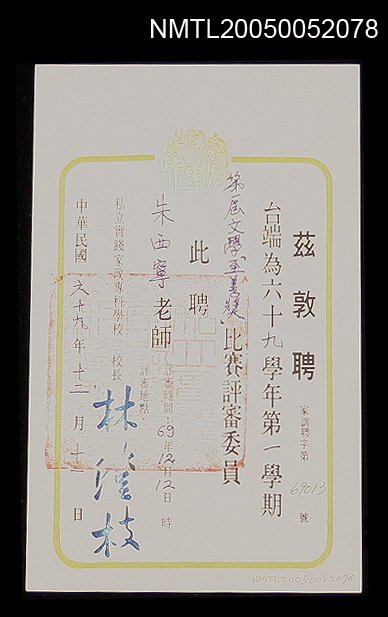 NMTL20050052078
茲敦聘
家訓聘字第69013號
台端為六十九學年第一學期
第一屆文學至美獎比賽評審委員
此聘
朱西寧老師
評審時間：69年12月12日 時
評審地點：
私立實踐家政專科學校 校長
林澄枝
中華民國六十九年十二月十二日
NMTL20050052078